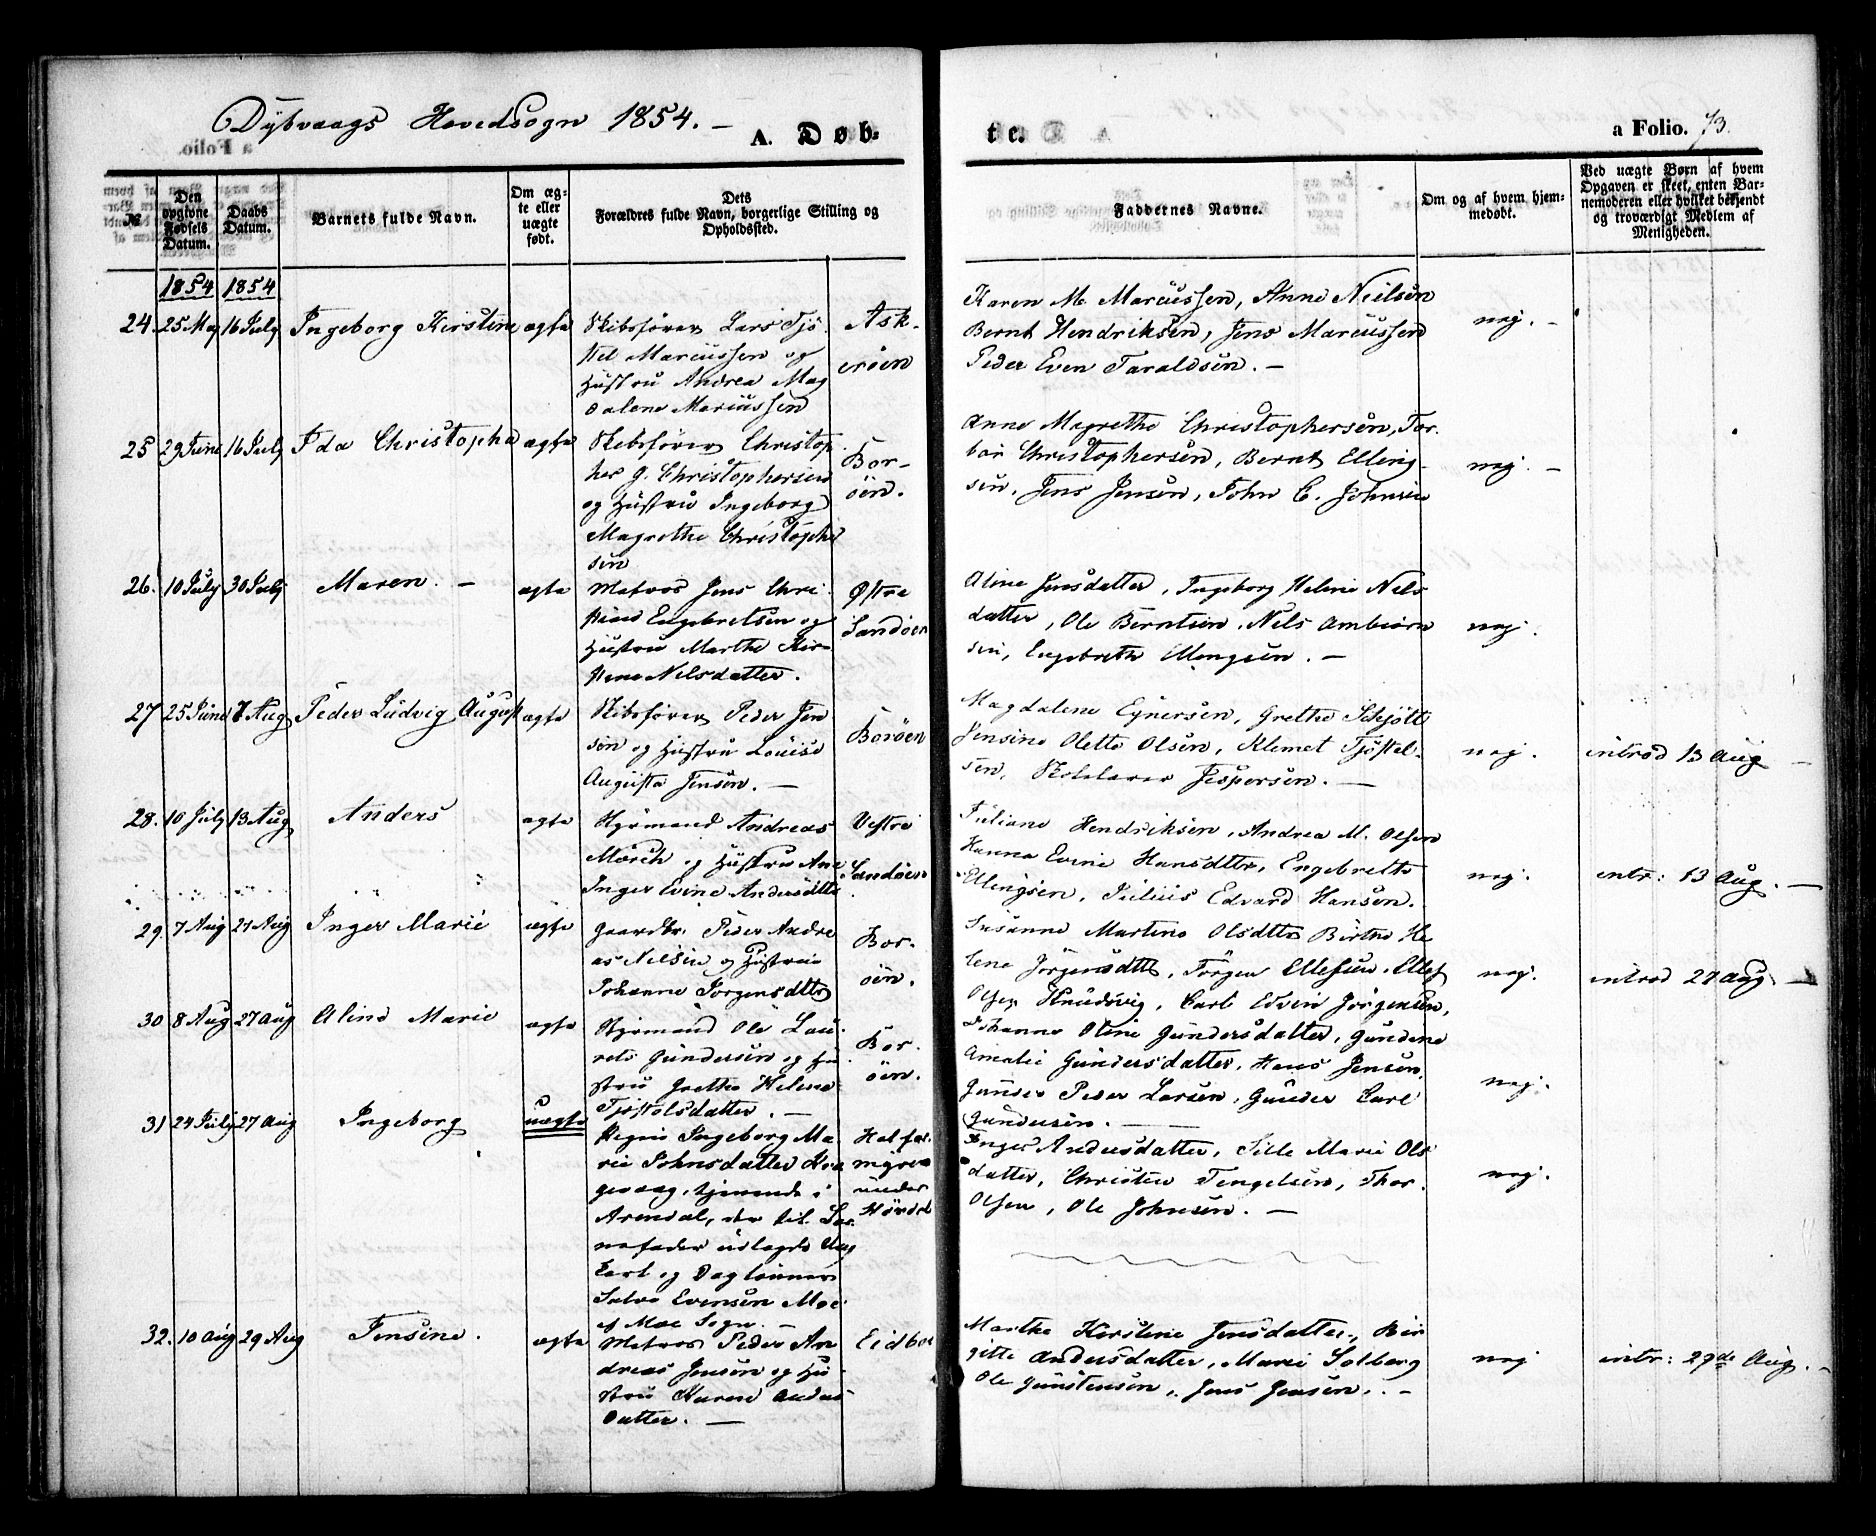 Dybvaags Hovedsogn 1854. –
A. Døb-
te.
a Folio. 73.
№
Den opgivne Fødsels Datum.
Daabs Datum.
Barnets fulde Navn.
Om ægte eller uægte født.
Dets Forældres fulde Navn, borgerlige Stilling og Opholdssted.
Faddernes Navne.
Om og af hvem hjemmedøbt.
Ved uægte Børn af hvem Opgaven er skeet, enten Barnemoderen eller hvilket bekjendt og troværdigt Medlem af Menigheden.
1854 1854
24. 25 Maj 16 July Ingeborg Kirstine ægte
Skibsfører Lars Tjö-
stel Marcussen og
Hustru Andrea Mag
dalene Marcussen
Ask-
eröen
Karen M. Marcussen, Anne Nielsen
Bernt Hendriksen, Jens Marcussen
Peder Even Taraldsen. –
nej. –
25 29 June 16 July Ida Christopha ægte
Skibsfører Christop
her G. Christophersen
og Hustru Ingeborg
Magrethe Christopher
sen
Bor-
öen.
Anne Magrethe Christophersen, Tor-
bör Christophersen, Bernt Elling-
sen, Jens Jensen, John C. Johnsen
nej. –
26. 10 July 30 July Maren. – ægte
Matros Jens Chri-
stian Engebretsen og
Hustru Marthe Kir-
stene Nilsdatter.
Østre
Sandöen
Aline Jensdatter, Ingeborg Helene Nels
datter, Ole Berntsen, Nels Ambiörn
sen, Engebreth Ellingsen. –
nej.
27 25 June 7 Aug Peder Ludvig August ægte
Skibsfører Peder Jen
sen og Hustru Louise
Augusta Jensen. –
Boröen
Magdalene Eynersen, Grethe Schjött
Jensine Olette Olsen, Klemet Tjöstel-
sen, Skolelærer Jespersen. –
nej.
introd 13 Aug –
28. 10 July 13 Aug Anders ægte
Hyrmand Andreas
Mörch og Hustru Ane
Inger Evine Andersdtte
Vestre
Sandöen
Juliane Hendriksen, Andrea M. Olsen
Hanna Evine Hansdtter, Engebreth
Ellingsen, Julius Edvard Hansen.
nej.
intr: 13 Aug. –
29. 7 Aug 27 Aug Inger Marie ægte
Gaardbr. Peder Andre
as Nilsen og Hustrue
Johanne Jorgensdtter
Bor-
öen.
Susanne Martine Olsdtter Birthe He
lene Jörgensdtt, Törger Ellefsen, Ellef
Olsen Knudsvig, Carl Edvin Jörgensen,
nej.
introd 27 Aug –
30 8 Aug 27 Aug Aline Marie ægte
Styrmand Ole Lau-
rets Gundersen og Hu-
stru Grethe Helene
Tjöstolsdatter. –
Bor-
öen.
Johanne Oline Gundersdatter, Gundene
Amalie Gundersdatter, Hans Jensen,
Gunder Peder Larsen, Gunder Carl
Gundersen. –
nej.
31 24 July 27 Aug Ingeborg uægte
Pigen Ingeborg Ma-
rie Johnsdatter Kra
gevaag, tjenende i
Arendal, der til Bar
nefader udlagde Ung
Karl og Daglönner
Salve Evensen Moe
af Moe Sogn. –
myren
under
Inger Andersdatter, Sille Marie Ols
datter, Christen Tengelsen, Thor
Olsen, Ole Johnsen. –
nej.
32. 10 Aug 29 Aug Jensine. ægte
Matros Peder An
dreas Jensen og Hu-
stru Karen Anders
datter. –
Eidboe
Marthe Kirstene Jensdatter, Bir
gitte Andersdatter, Marie Solberg
Ole Gunstensen, Jens Jensen. –
nej
intr: 29de Aug. –